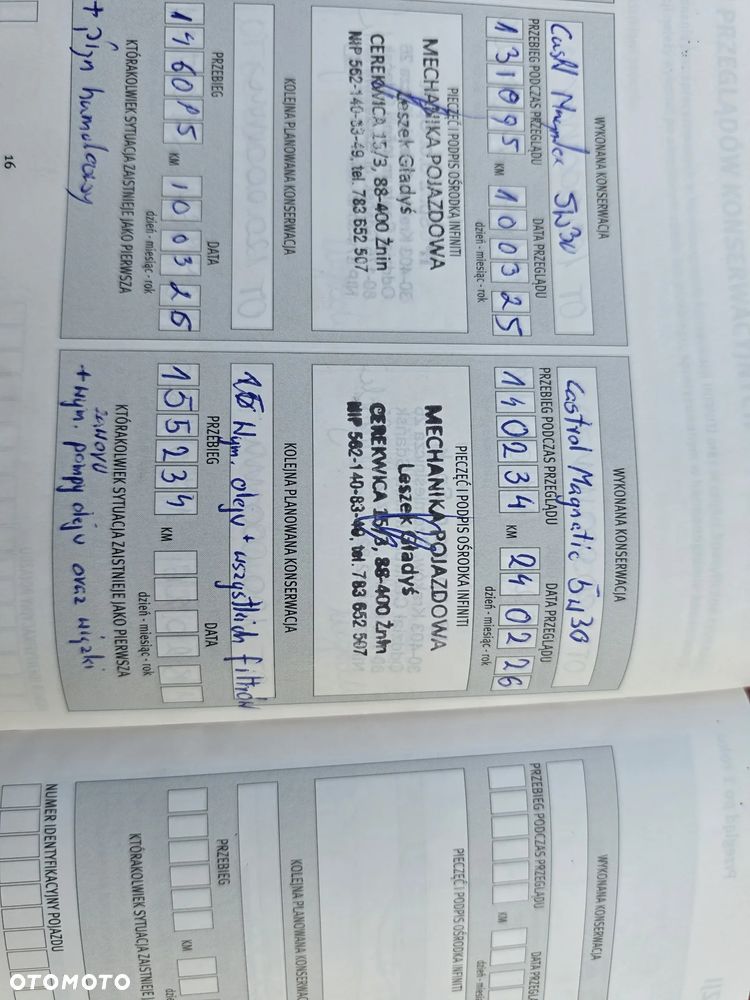 WYKONANA KONSERWACJA
Magnatec 5W30
PRZEBIEG PODCZAS PRZEGLĄDU
DATA PRZEGLĄDU
131095 KM 100325
dzień - miesiąc - rok
PIECZĘĆ I PODPIS OŚRODKA INFINITI
MECHANIKA POJAZDOWA
Leszek Gładyś
CEREKWICA 15/3, 88-400 Żnin
NIP 562-140-83-49, tel. 783 652 507
KOLEJNA PLANOWANA KONSERWACJA
PRZEBIEG
DATA
146085 KM 100326
dzień - miesiąc - rok
KTÓRAKOLWIEK SYTUACJA ZAISTNIEJE JAKO PIERWSZA
+ płyn hamulcowy
16
WYKONANA KONSERWACJA
Castrol Magnatic 5W30
PRZEBIEG PODCZAS PRZEGLĄDU
DATA PRZEGLĄDU
140234 KM 240226
dzień - miesiąc - rok
PIECZĘĆ I PODPIS OŚRODKA INFINITI
MECHANIKA POJAZDOWA
Leszek Gładyś
CEREKWICA 15/3, 88-400 Żnin
NIP 562-140-83-49, tel. 783 652 507
KOLEJNA PLANOWANA KONSERWACJA
Wym. oleju + wszystkich filtrów
PRZEBIEG
DATA
155234 KM
dzień - miesiąc - rok
KTÓRAKOLWIEK SYTUACJA ZAISTNIEJE JAKO PIERWSZA
zaworu
+ wym. pompy oleju oraz wiązki
WYKONANA KONSERWACJA
PRZEBIEG PODCZAS PRZEGLĄDU
KM
PIECZĘĆ I PODPIS OŚRODKA INFINITI
PRZEBIEG
KM
NUMER IDENTYFIKACYJNY POJAZDU
OTOMOTO